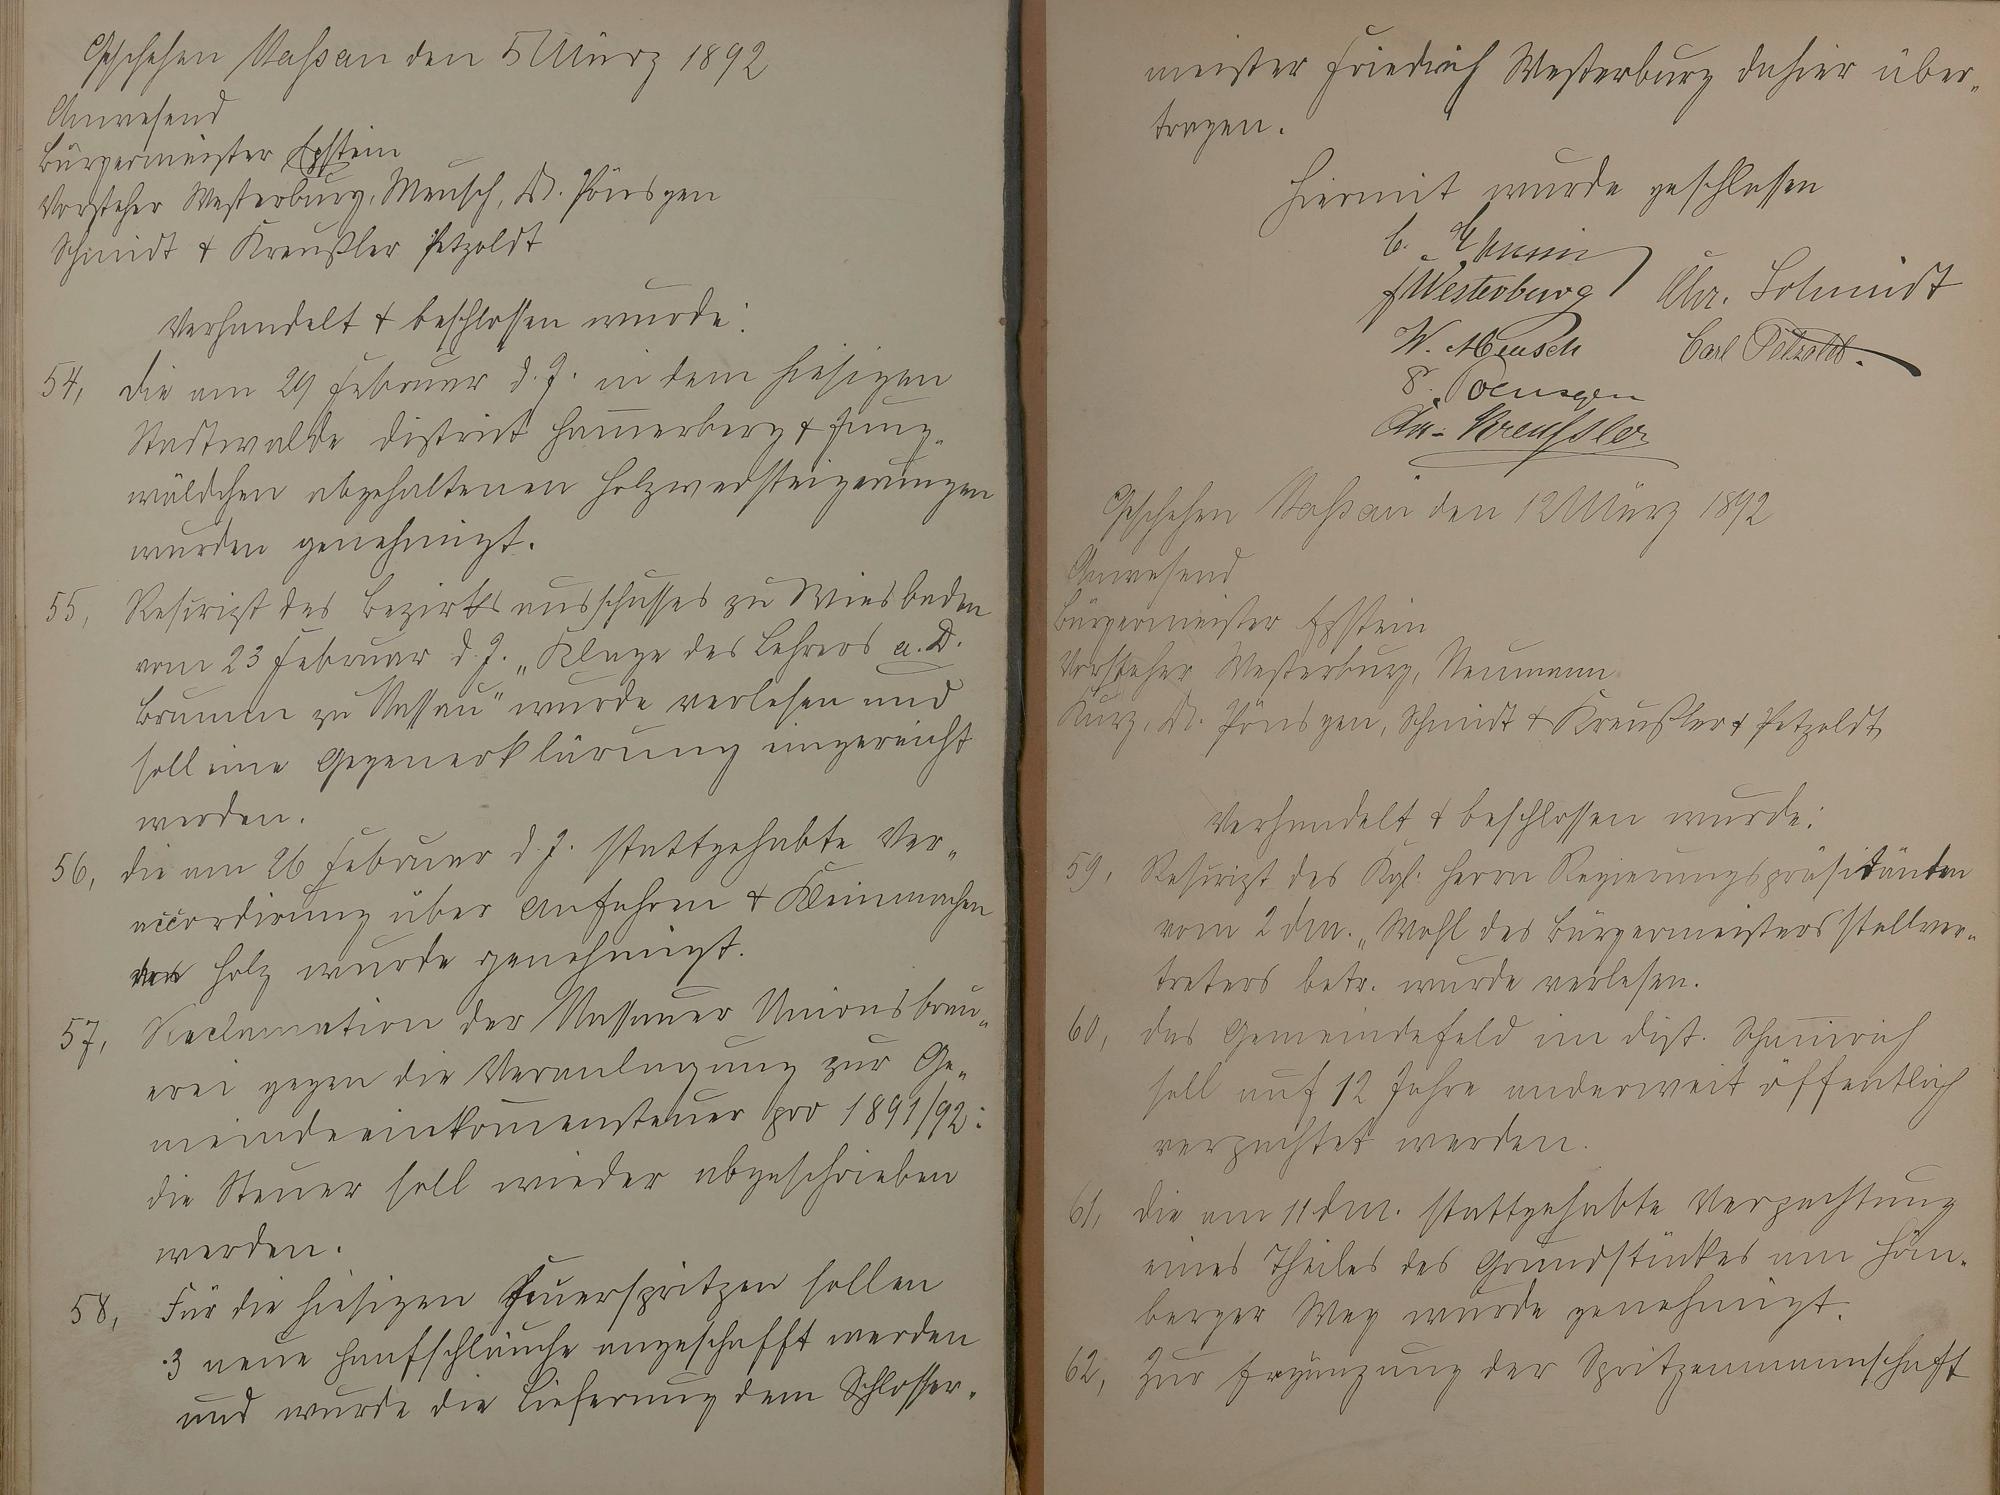 Geschehen Nassau den 5 März 1892
Anwesend
Bürgermeister Epstein
Vorsteher Westerburg, Mensch, D. Pönsgen
Schmidt & Kreußler Petzoldt
Verhandelt & beschlossen wurde:
54, Die am 29 Februar d. J. in dem hiesigen
Stadtwalde District Ham̅erberg & Jung-
wäldchen abgehaltenen Holzversteigerungen
wurden genehmigt.
55, Rescript des Bezirksausschusses zu Wiesbaden
vom 23 Februar d. J. „Klage des Lehrers a. D.
Brumm zu Nassau" wurde verlesen und
soll eine Gegenerklärung eingereicht
werden.
56, Die am 26 Februar d. J. stattgehabte Ver-
accordirung über Anfahren & Kleinmachen
Holz wurde genehmigt.
57, Reclamation der Nassauer Unionsbrau-
erei gegen die Veranlagung zur Ge-
meindeeinkom̅ensteuer pro 1891/92:
die Steuer soll wieder abgeschrieben
werden.
58, Für die hiesigen Feuerspritzen sollen
3 neue Hanfschläuche angeschafft werden
und wurde die Lieferung dem Schlosser-
meister Friedrich Westerburg dahier über-
tragen.
Hiermit wurde geschlossen
C. Epstein
F Westerburg Chr. Schmidt
W. Mensch Carl Petzoldt.
D. Poensgen
Kreußler
Geschehen Nassau den 12 März 1892
Anwesend
Bürgermeister Epstein
Vorsteher Westerburg, Neumann
Kurz, D. Pönsgen, Schmidt & Kreußler & Petzoldt
Verhandelt & beschlossen wurde:
59, Rescript des Kgl. Herrn Regierungspräsidänten
vom 2 dM. „Wahl des Bürgermeistersstellver-
treters betr. wurde verlesen.
60, Das Gemeindefeld im Dist.
soll auf 12 Jahre anderweit öffentlich
verpachtet werden.
61, Die am 11 dM. stattgehabte Verpachtung
eines Theiles des Grundstückes am Höm-
berger Weg wurde genehmigt.
62, Zur Ergänzung der Spritzenmannschaft